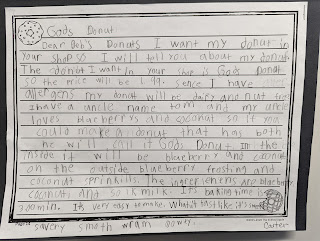 Gods Donut
Dear Deb's Donats I want my donut in
your shop so I will tell you about my donut.
The donut I want in your shop is Gods Donut
so the price will be 1.49. sense I have
allergens my donut will be dairy and nut free
I have a uncle name tom and my uncle
loves blueberrys and coconut so if you
could make a donut that has both
he will call it Gods Donut. In the
inside it will be blueberry and coconut
on the outside blueberry frosting and
coconut sprinkills. The ingredients are blueberry
coconut, and so ik milk. It's baking time is
30min. It's very easy to make. What it tast like it's
savery smoth wram
Carter